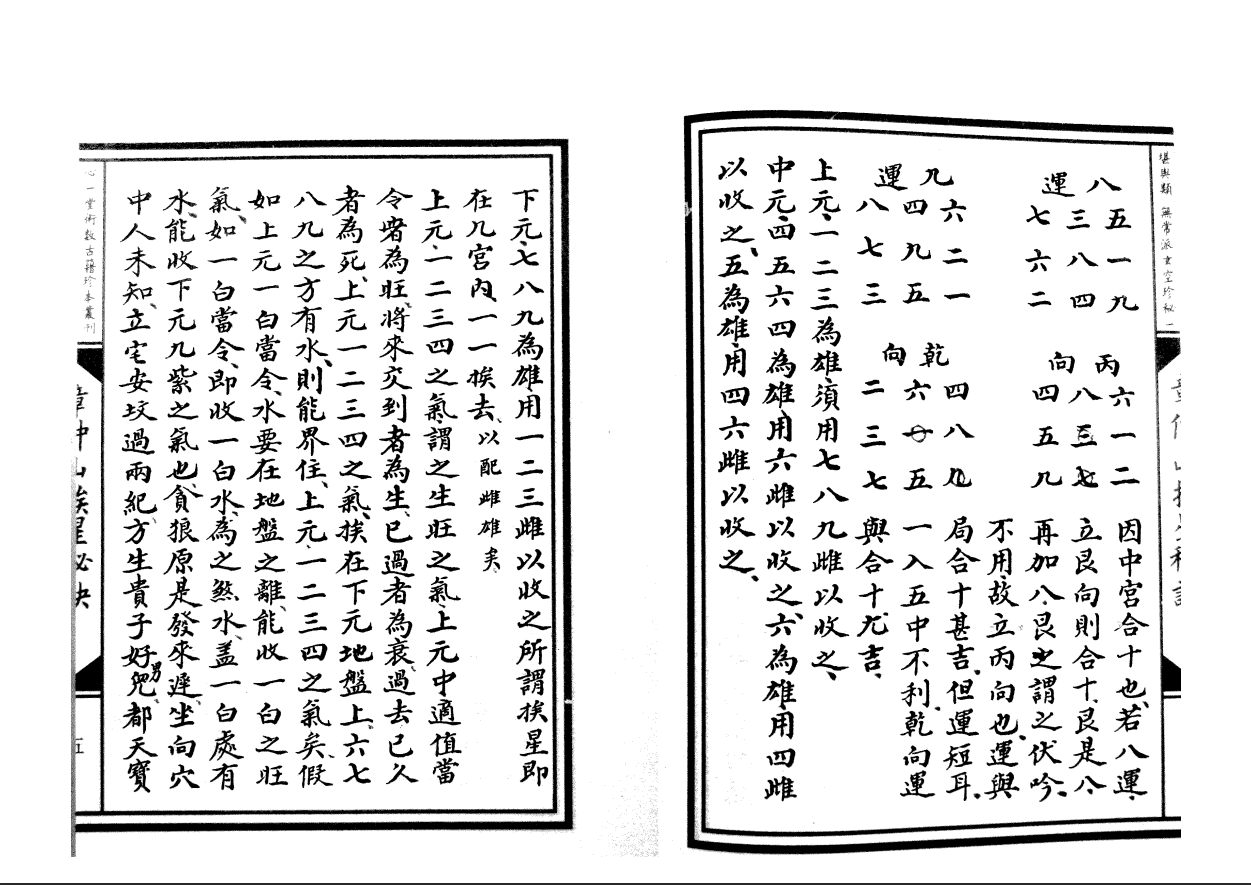 堪輿類 無常派玄空珍秘 一
八運
丙向
五一九 六一二 因中宮合十也、若八運、
三八四 八三七 立艮向則合十、艮是八、
七六二 四五九 再加八、艮謂之伏吟、
不用、故立丙向也、運與
九運
乾向
六二一 四八九 局合十甚吉、但運短耳、
四九五 六一五 一入五中不利、乾向運
八七三 二三七 與合十尤吉、
上元、一二三為雄、須用七八九雌以收之、
中元、四五六、四為雄、用六雌以收之、六為雄、用四雌
以收之、五為雄、用四六雌以收之、
下元、七八九為雄、用一二三雌以收之、所謂挨星、即
在九宮內、一一挨去、以配雌雄矣、
上元、一二三四之氣、謂之生旺之氣、上元中適值當
令者為旺、將來交到者為生、已過者為衰、過去已久
者為死、上元一二三四之氣、挨在下元地盤上、六七
八九之方有水、則能界住、上元、一二三四之氣矣、假
如上元一白當令、水要在地盤之離、能收一白之旺
氣、如一白當令、即收一白水、為之煞水、盖一白處有
水、能收下元九紫之氣也、貪狼原是發來遲、坐向穴
中人未知、立宅安坟過兩紀、方生貴子好男兒、都天寶
心一堂術數古籍珍本叢刊
章仲山挨星秘訣
五